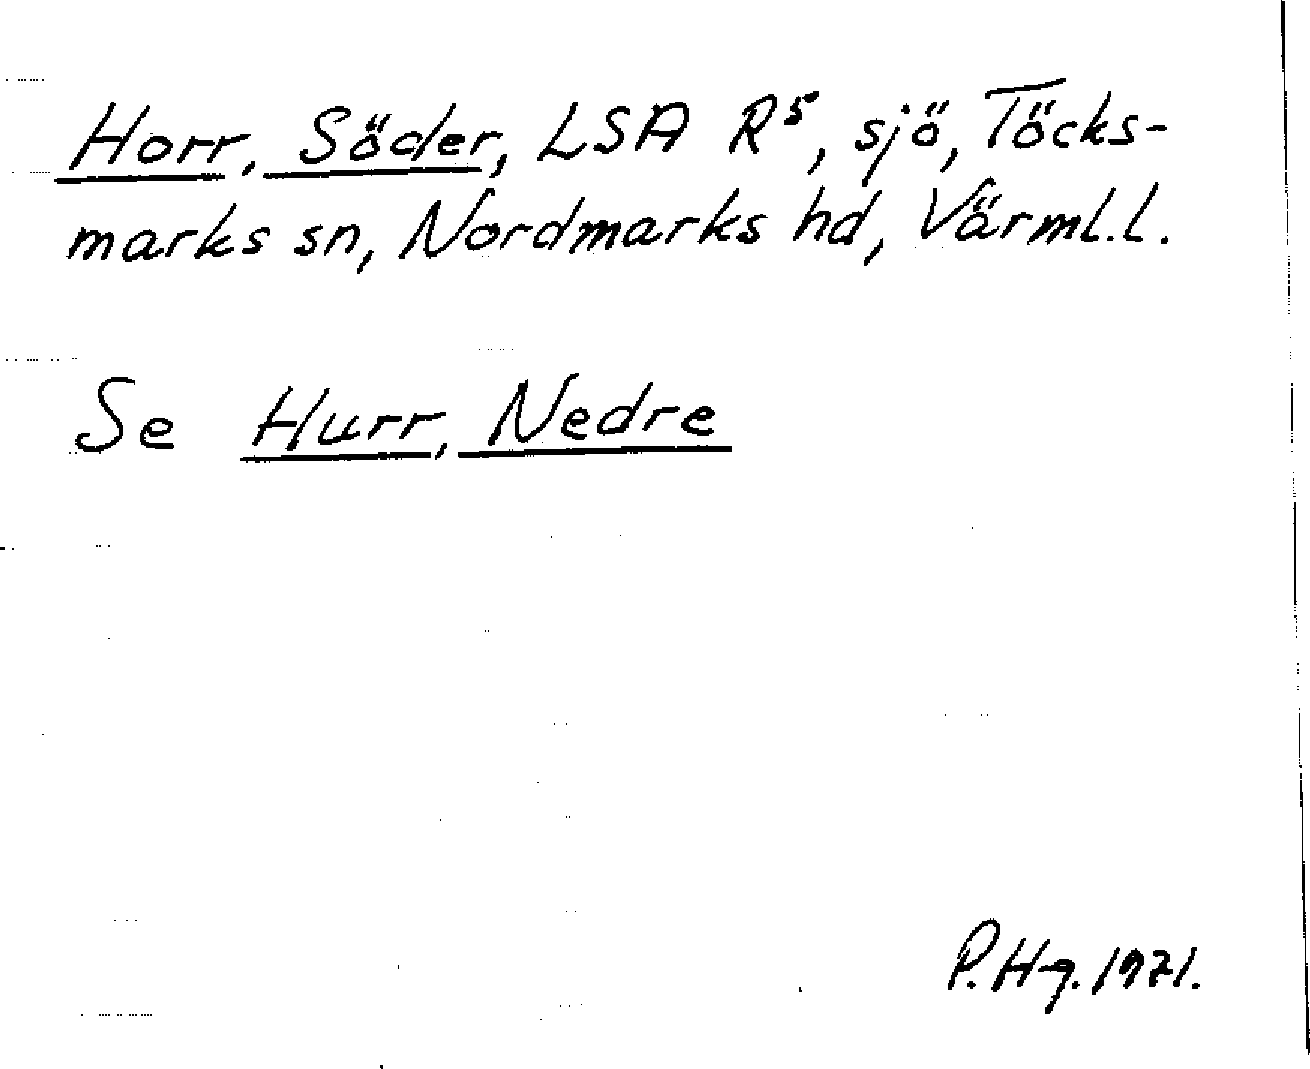 Horr, Söder, LSA R⁵, sjö, Töcks-
marks sn, Nordmarks hd, Värml.l.
Se Hurr, Nedre
P.Hg. 1971.